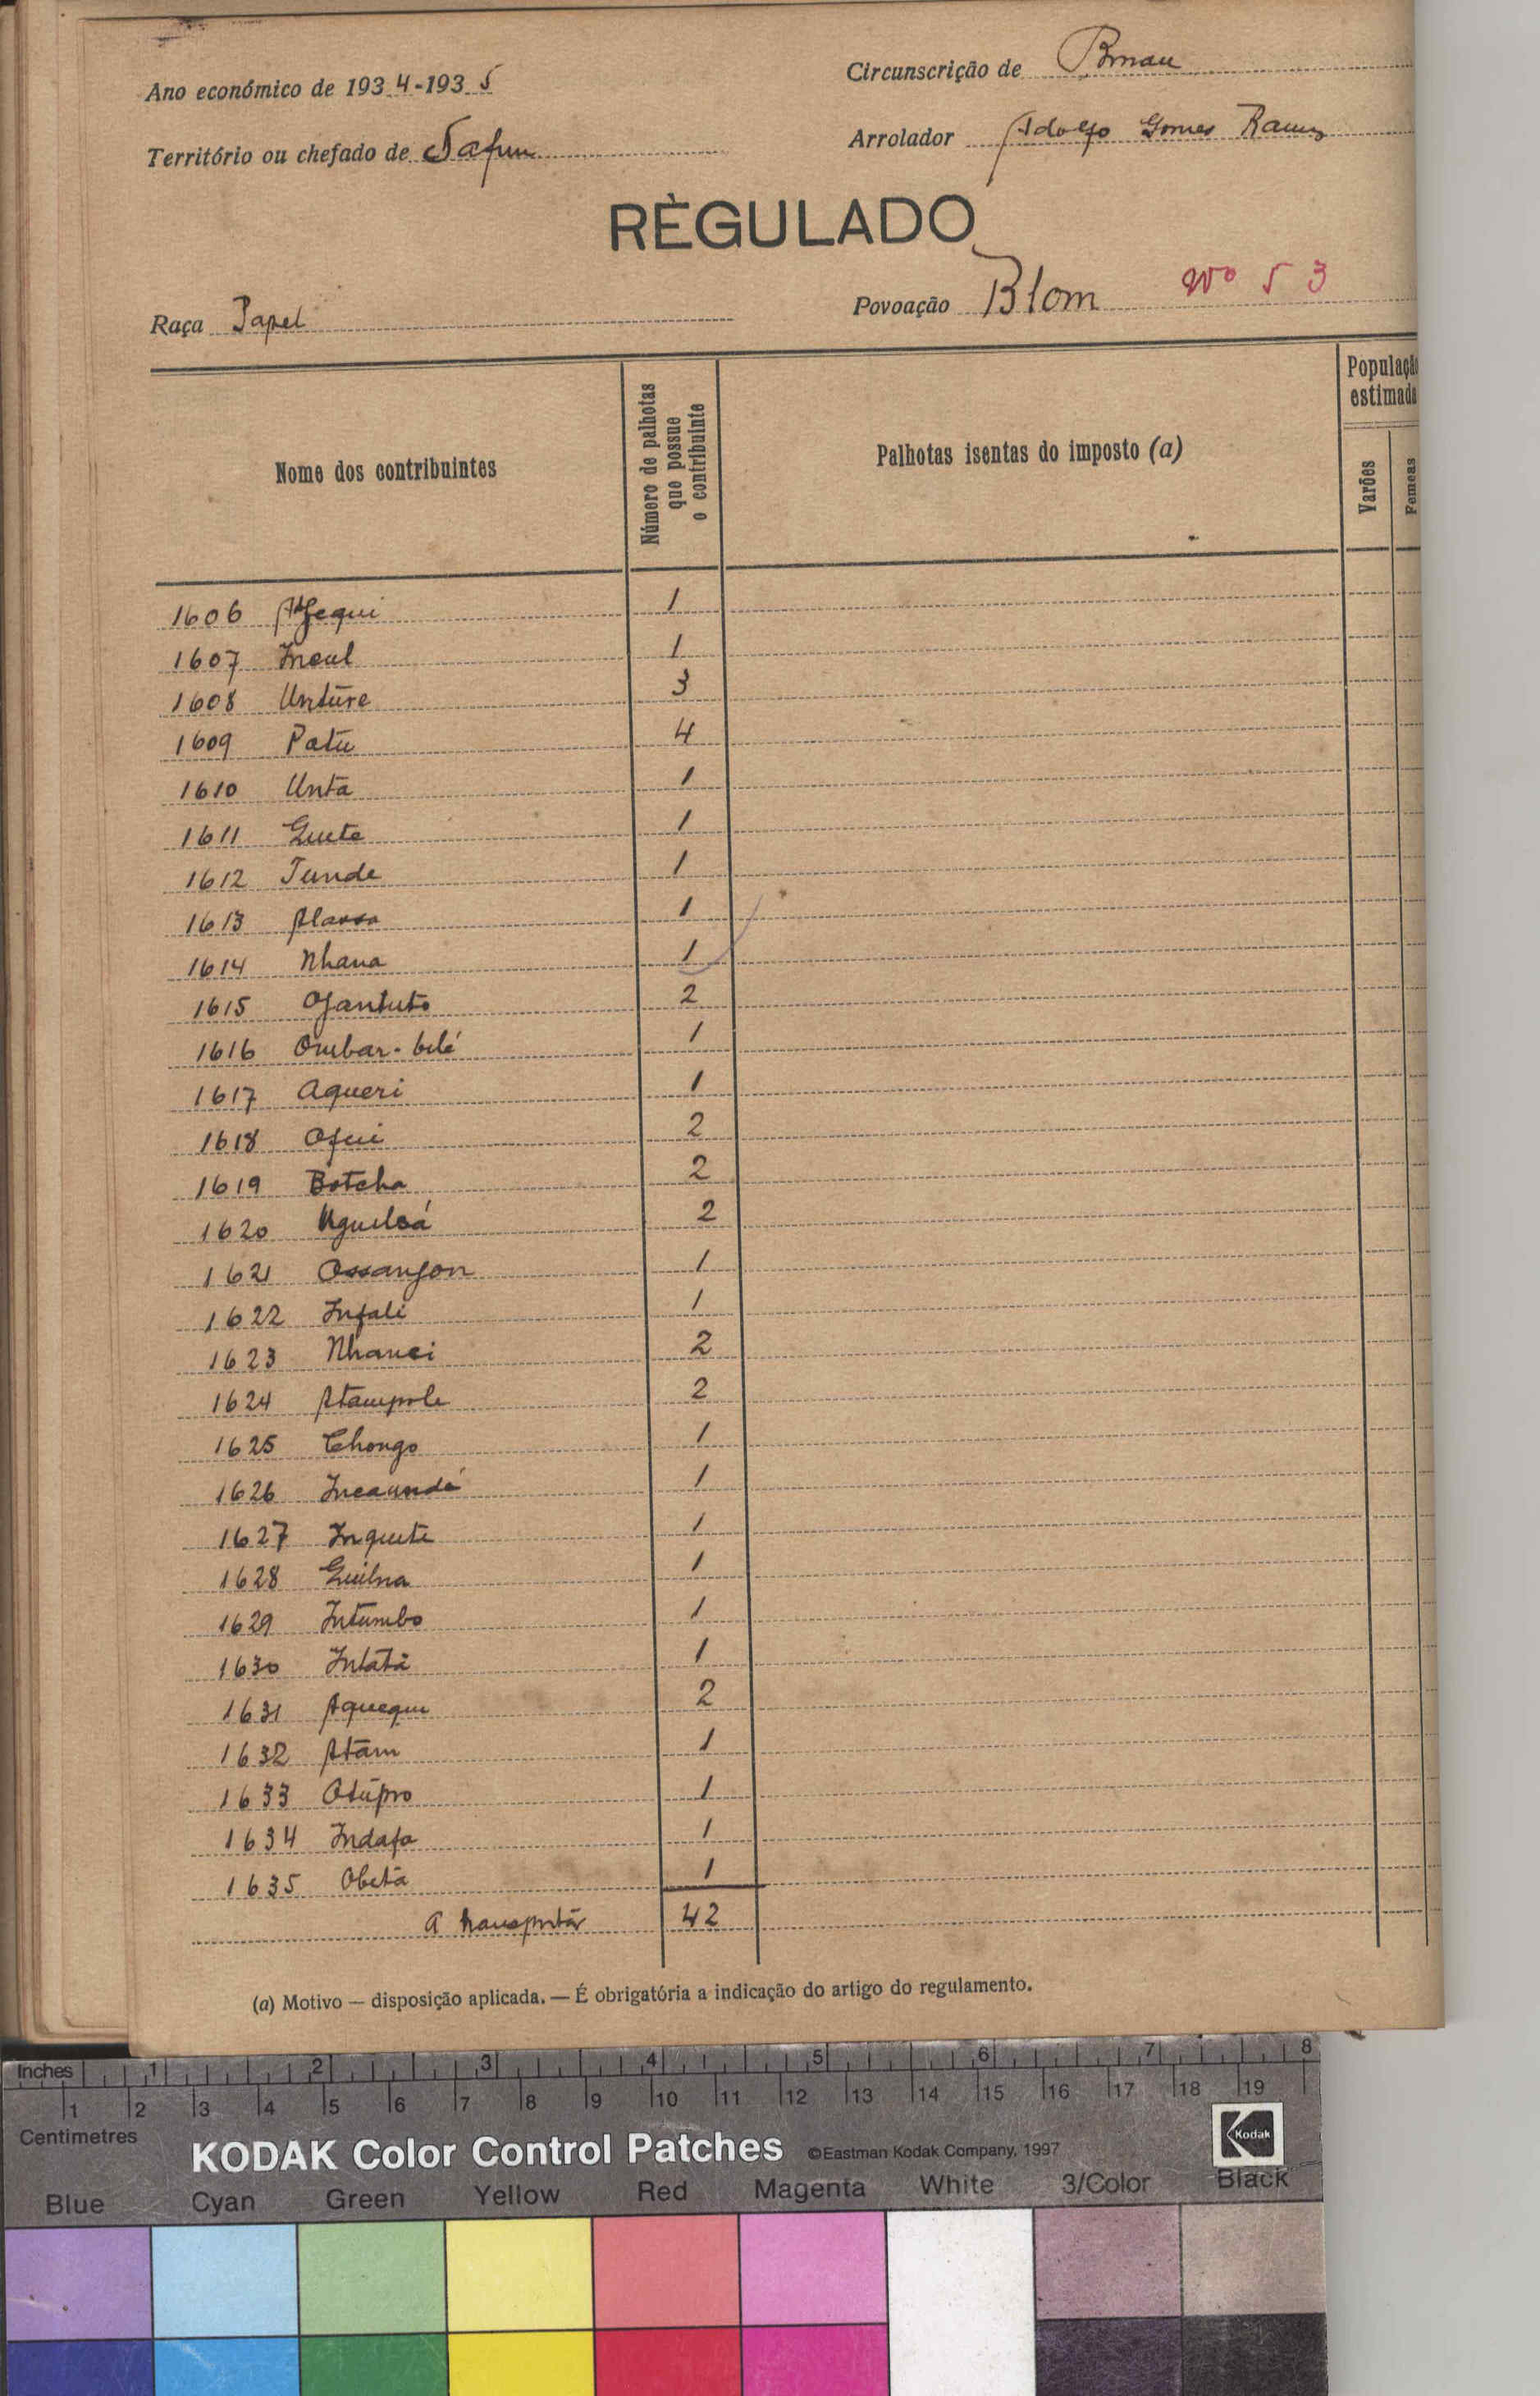 Ano económico de 1934-1935
Circunscrição de Bissau
Território ou chefado de Safim
Arrolador Adolfo Gomes Ramos
RÈGULADO
Raça Papel
Povoação Blom Nº 53
Nome dos contribuintes
Número de palhotas que possue o contribuinte
Palhotas isentas do imposto (a)
População estimada
Varões
Femeas
1606 1
1607 Incul 1
1608 Untúre 3
1609 Patú 4
1610 Unta 1
1611 Quete 1
1612 Tunde 1
1613 Alassa 1
1614 Nhana 1
1615 Ofantuto 2
1616 Ombar-bilé 1
1617 Aqueri 1
1618 Ofui 2
1619 Botcha 2
1620 2
1621 Ossanfon 1
1622 Infali 1
1623 Nhanci 2
1624 Atampole 2
1625 Chongo 1
1626 Incaundé 1
1627 Inquete 1
1628 Quilna 1
1629 Intumbo 1
1630 Intatá 1
1631 Aquequi 2
1632 Atám 1
1633 Otúpro 1
1634 Indafa 1
1635 Obitá 1
A transportár 42
(a) Motivo — disposição aplicada. — É obrigatória a indicação do artigo do regulamento.
Inches 1 2 3 4 5 6 7 8
1 2 3 4 5 6 7 8 9 10 11 12 13 14 15 16 17 18 19
Centimetres
KODAK Color Control Patches ©Eastman Kodak Company, 1997 Kodak
Blue Cyan Green Yellow Red Magenta White 3/Color Black